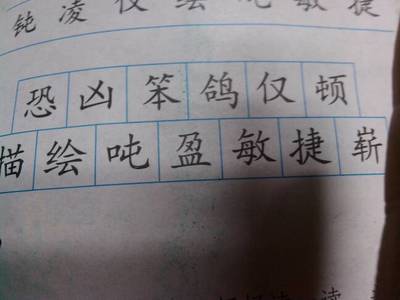 钝凌仅绘吨敏捷
恐凶笨鸽仅顿
描绘吨盈敏捷崭
读